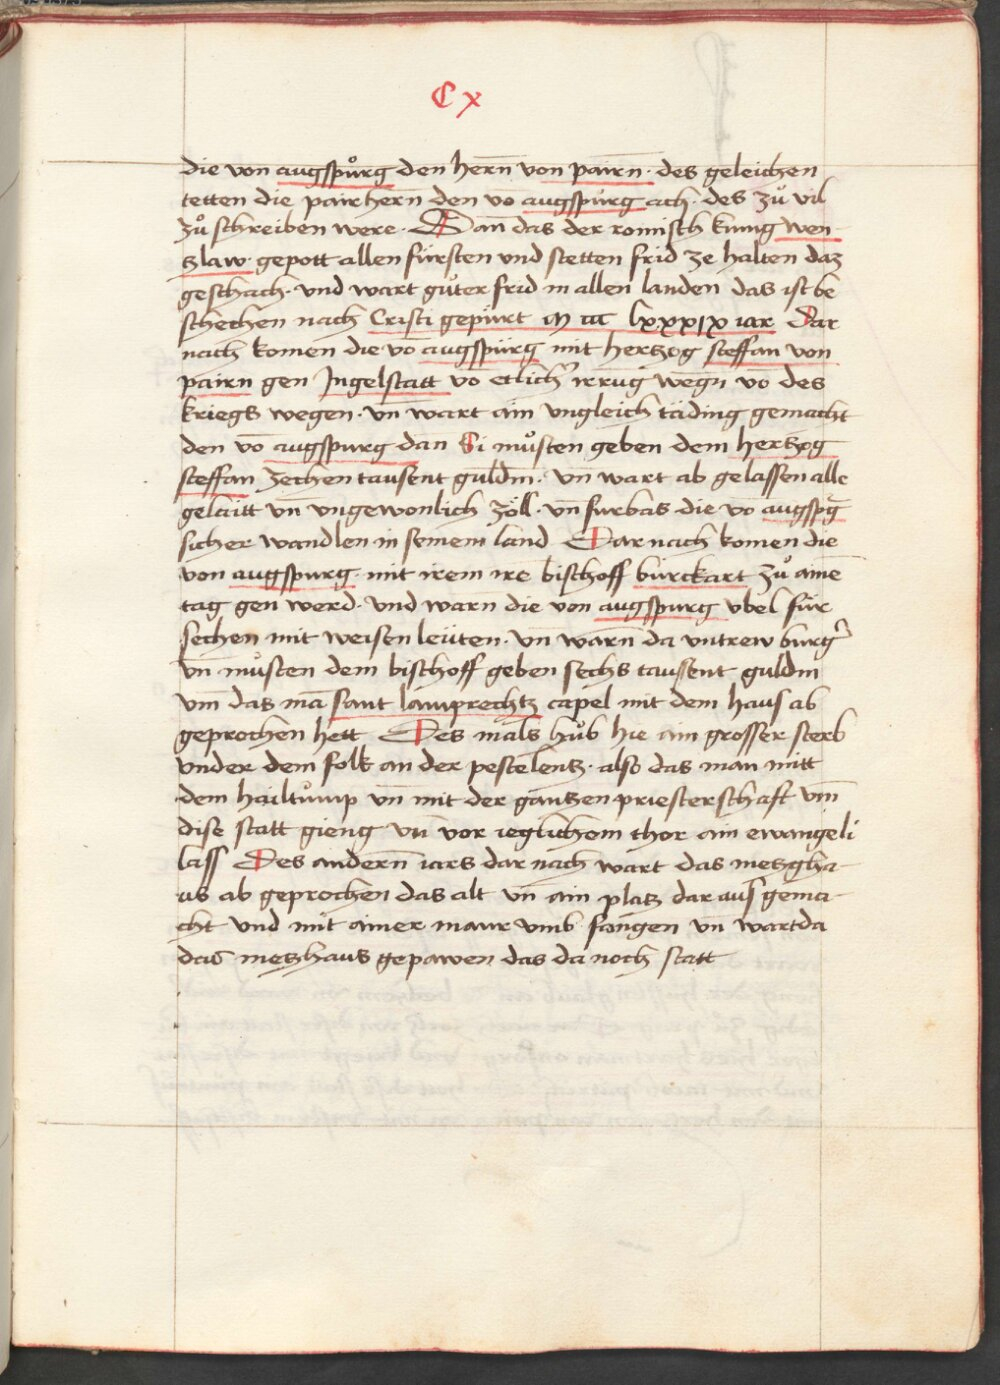 C x
die von augspůrg den hern̄ von pairn̄ · des geleichen
tetten die pairhern̄ den vō augspůrg ach · des zů vil
zů schreiben were · Dan̄ das der romisch kunig wen-
zlaw · gepott allen fürsten vnd stetten frid ze halten daz
geschach · vnd wart gůter frid in allen landen das ist be
schechen nach Cristi gepürt M ccc lxxxix iar Dar
nach komen die vō augspürg mit hertzog steffan von
pairn gen Ingelstatt vō etlicher irrūg wegn̄ vō des
kriegs wegen · vn̄ wart ain vngleich täding gemacht
den vō augspurg dan Si můsten geben dem hertzog
steffan zechen tausent guldin · vn̄ wart ab gelassen alle
gelaitt vn̄ vngewonlich zöll · vn̄ furbas die vō augspḡ
sicher wandlen in seinem land Dar nach komen die
von augspurg · mit irem ire bischoff burckart zů aine
tag gen werd · vnd warn̄ die von augspurg vbel für
sechen mit weisen leüten · vn̄ warn̄ da vntrew burg̕
vn̄ můsten dem bischoff geben sechs taussent guldin
vm̄ das mā sant lamprechtz capel mit dem haus ab
geprochen hett Des mals hůb hie ain grosser sterb
vnder dem folk an der pestelentz · also das man mitt
dem hailtump vn̄ mit der gantzen priesterschaft vm̄
dise statt gieng vn̄ vor ieglichem thor ain ewangeli
lass Des andern̄ iars dar nach wart das metzgha-
us ab geprochen das alt vn̄ ain platz dar aus gema-
cht vnd mit ainer maur vmb fangen vn̄ wart da
das metzhaus gepawen das da noch statt